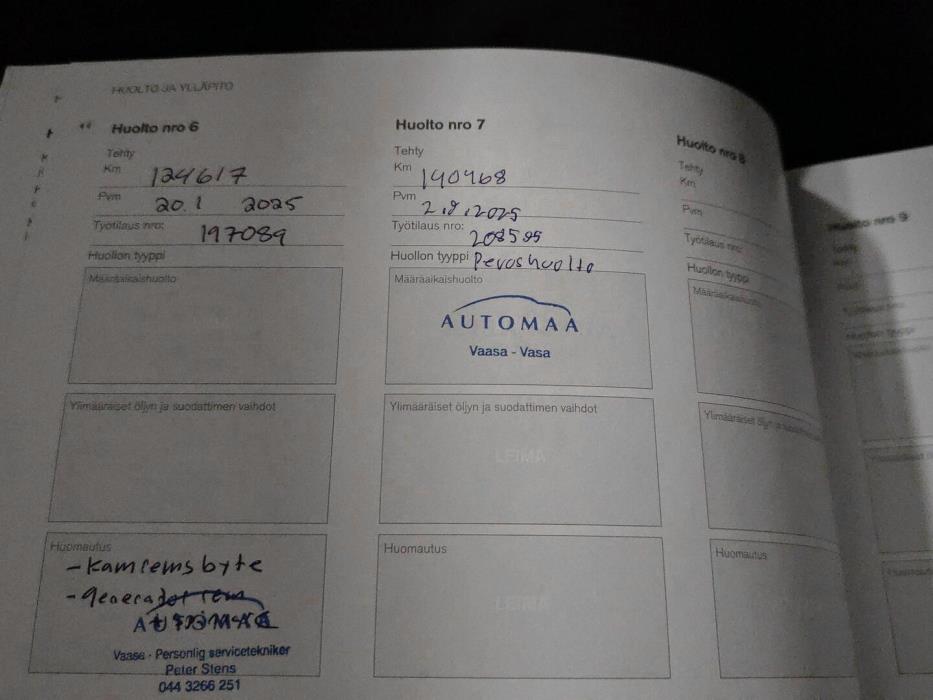 HUOLTO JA YLLÄPITO
Huolto nro 6
Tehty
Km 124617
Pvm 20.1 2025
Työtilaus nro: 197089
Huollon tyyppi
Määräaikaishuolto
Ylimääräiset öljyn ja suodattimen vaihdot
Huomautus
- Kamremsbyte
- generatorrem
AUTOMAA
Vaasa - Personlig servicetekniker
Peter Stens
044 3266 251
Huolto nro 7
Tehty
Km 140468
Pvm 2.9.2025
Työtilaus nro: 208595
Huollon tyyppi Perushuolto
Määräaikaishuolto
AUTOMAA
Vaasa - Vasa
Ylimääräiset öljyn ja suodattimen vaihdot
LEIMA
Huomautus
LEIMA
Huolto nro 8
Tehty
Km
Pvm
Työtilaus nro:
Huollon tyyppi
Määräaikaishuolto
Ylimääräiset öljyn ja
Huomautus
Huolto nro 9
Tehty
Huollon tyyppi